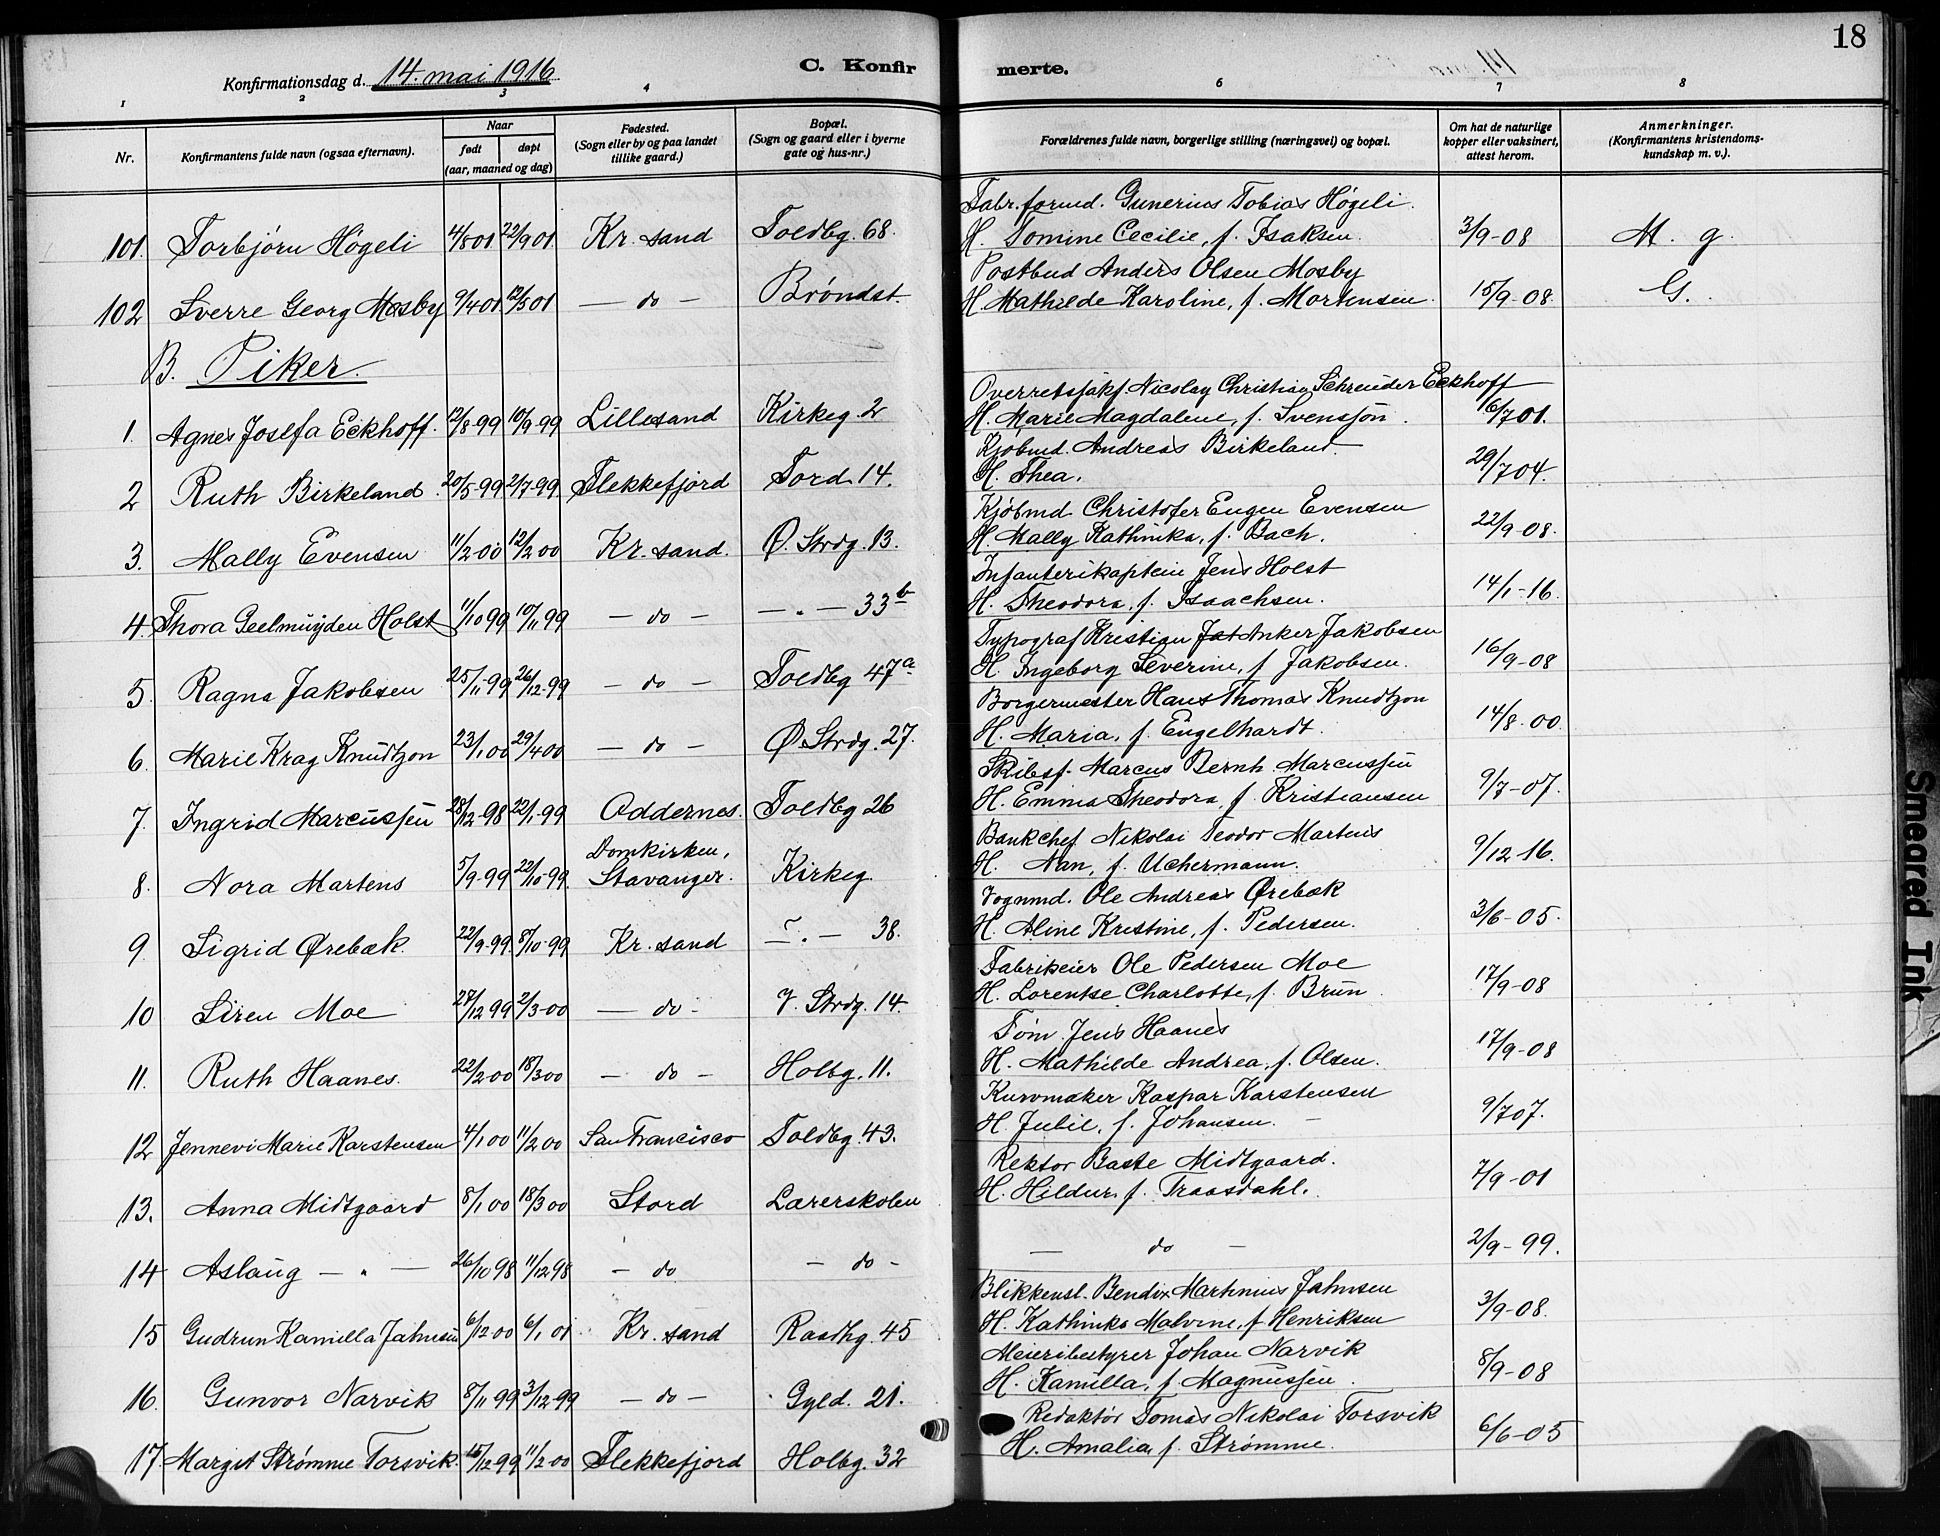 18
Konfirmationsdag d. 14. mai 1916
C. Konfir merte.
1 2 3 4 6 7 8
Nr. | Konfirmantens fulde navn (ogsaa efternavn). | Naar født døpt (aar, maaned og dag) | Fødested. (Sogn eller by og paa landet tillike gaard.) | Bopæl. (Sogn og gaard eller i byerne gate og hus-nr.) | Forældrenes fulde navn, borgerlige stilling (næringsvei) og bopæl. | Om hat de naturlige kopper eller vaksinert, attest herom. | Anmerkninger. (Konfirmantens kristendoms-kundskap m. v.).
Fabr.formd. Gunerius Tobias Høgeli.
101. Torbjørn Høgeli 4/8 01 22/9 01 Kr. sand Toldbg. 68. H. Tomine Cecilie, f. Isaksen. 3/9-08 M. g.
Postbud Anders Olsen Mosby
102 Sverre Georg Mosby 9/4 01 12/5 01 — do — Brøndst. H. Mathilde Karoline, f. Mortensen. 15/9-08. G.
B. Piker.
Overretssakf. Nicolay Christian Schreuder Eckhoff
1. Agnes Josefa Eckhoff. 12/8-99 10/9-99 Lillesand Kirkeg. 2 H. Marie Magdalene, f. Svensjøn. 16/7 01.
Kjøbmd. Andreas Birkeland.
2 Ruth Birkeland. 20/5-99 2/7-99 Flekkefjord Tord. 14. H. Thea. 29/7 04.
Kjøbmd Christofer Eugen Evensen
3. Mally Evensen 11/2 00 12/2 00 Kr. sand. Ø. Strdg. 13. H. Mally Kathinka, f. Bach. 22/9-08.
Infanterikaptein Jens Holst
4. Thora Geelmuijden Holst 11/10 99 10/11 99 — do — — " — 33b H. Theodora, f. Isaachsen. 14/1-16.
Typograf Kristian Jat Anker Jakobsen
5 Ragna Jakobsen 25/11-99 26/12-99 — do — Toldbg 47a H. Ingeborg Severine, f. Jakobsen. 16/9-08
Borgermester Hans Thomas Knudtzon
6. Marie Krag Knudtzon 23/1 00 29/4 00 — do — Ø. Strdg. 27 H. Maria, f. Engelhardt. 14/8-00
Skibsf. Marcus Bernh. Marcussen
7. Ingrid Marcussen 28/12-98 22/1-99 Oddernes. Toldbg 26 H. Emma Theodora, f. Kristiansen 9/7-07.
Bankchef Nikolai Teodor Martens
8. Nora Martens 5/9-99 22/10-99 Domkirken, Stavanger. Kirkeg. H. Nan, f. Uchermann. 9/12 16.
Vognmd. Ole Andreas Ørebæk
9. Sigrid Ørebæk. 22/9-99. 8/10-99 Kr. sand — " — 38. H. Aline Kristine, f. Pedersen. 3/6-05.
Fabrikeier Ole Pedersen Moe
10 Siren Moe 27/12 99 2/3-00 — do - V. Strdg. 14. H. Lorentse Charlotte, f. Brun 17/9-08
Tøm. Jens Haanes
11. Ruth Haanes. 22/2 00 18/3 00 — do — Holbg. 11. H. Mathilde Andrea, f. Olsen. 17/9-08
Kurvmaker Kaspar Karstensen
12 Jennevi Marie Karstensen 4/1 00 11/2 00 San Francisco Toldbg. 43. H. Julie, f. Johansen. 9/7 07.
Rektor Baste Midtgaard.
13. Anna Midtgaard 8/1 00 18/3 00 Stord Lærerskolen H. Hildur f. Traasdahl. 7/9-01
14 Aslaug — " — 26/10 98 11/12 98 — do — do — — do — 2/9-99.
Blikkensl. Bendix Martinius Jahnsen
15 Gudrun Kamilla Jahnsen 6/12 00 6/1 01 Kr. sand Raadhg. 45 H. Kathinka Malvine, f. Henriksen 3/9-08.
Meieribestyrer Johan Narvik
16. Gunvor Narvik 8/11 99 3/12-99 — do — Gyld. 21. H. Kamilla, f. Magnussen. 8/9-08
Redaktør Tomas Nikolai Torsvik
17 Margit Strømme Torsvik. 15/12-99 11/2-00 Flekkefjord Holbg. 32 H. Amalia, f. Strømme. 6/6-05
Smeared Ink